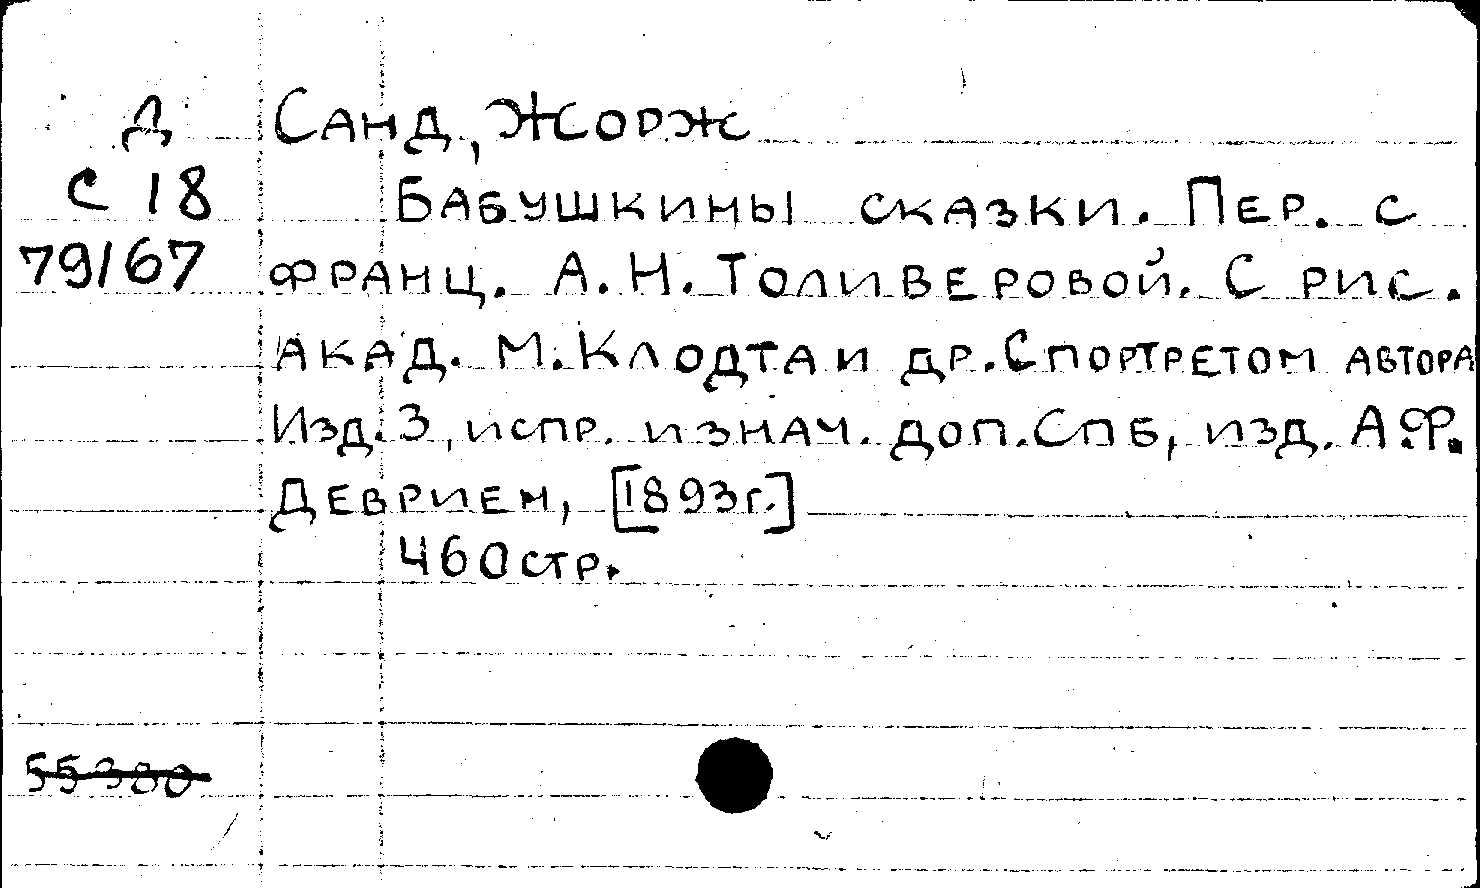 Д
С 18
79/67
Санд, Жорж
Бабушкины сказки. Пер. с
франц. А. Н. Толиверовой. С рис.
акад. М. Клодта и др. С портретом автора
Изд. 3, испр. и знач. доп. Спб, изд. А.Ф.
Девриен, [1893г.]
460 стр.
55380